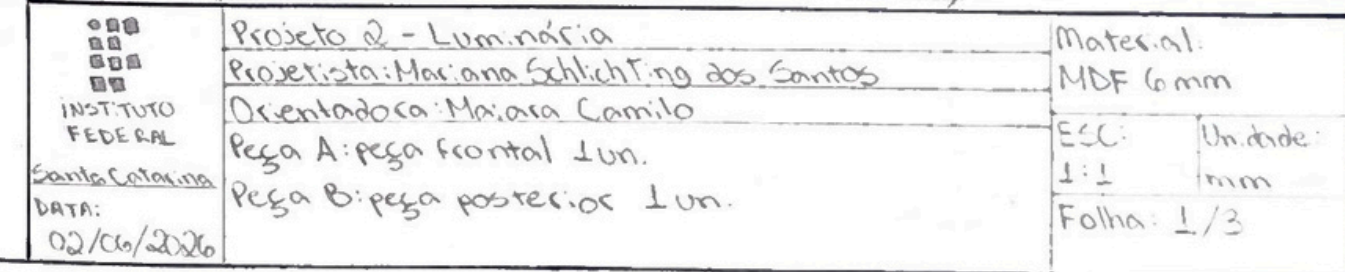 INSTITUTO
FEDERAL
Santa Catarina
DATA:
02/06/2026
Projeto 2 - Luminária
Projetista: Mariana Schlichting dos Santos
Orientadora: Maiara Camilo
Peça A: peça frontal 1un.
Peça B: peça posterior 1un.
Material:
MDF 6mm
ESC:
1:1
Unidade:
mm
Folha: 1/3